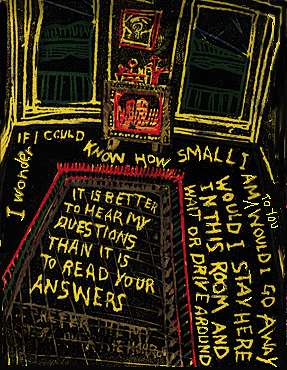 I wonder
IF I COULD KNOW HOW SMALL I
AM TO YOU WOULD I GO AWAY
WOULD I STAY HERE
IN THIS ROOM AND
WAIT OR DRIVE AROUND
IT IS BETTER
TO HEAR MY
QUESTIONS
THAN IT IS
TO READ YOUR
ANSWERS